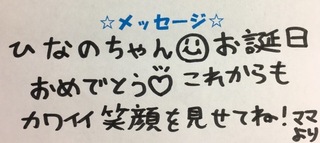 ☆メッセージ☆
ひなのちゃん☺お誕生日
おめでとう♡これからも
カワイイ笑顔を見せてね!ママより